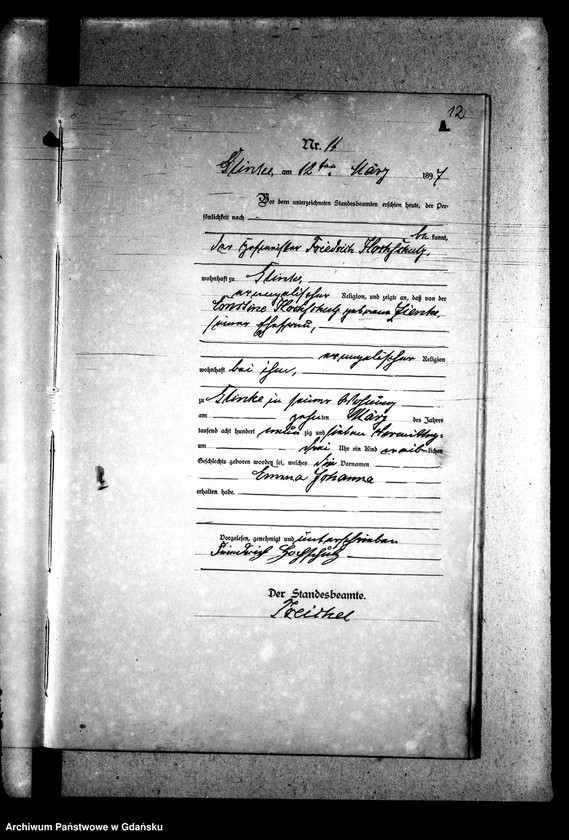 12
A.
Nr. 11
Flinke, am 12ten März 1897
Vor dem unterzeichneten Standesbeamten erschien heute, der Per-
sönlichkeit nach
bekannt,
der Friedrich Hochschulz,
wohnhaft zu Flinke,
evangelischer Religion, und zeigte an, daß von der
Hochschulz geborene Zienke,
seiner Ehefrau,
evangelischer Religion
wohnhaft bei ihm,
zu Flinke in seiner Wohnung
am zehnten März des Jahres
tausend acht hundert neunzig und sieben Vormittags
um drei Uhr ein Kind weiblichen
Geschlechts geboren worden sei, welches die Vornamen
Emma Johanna
erhalten habe.
Vorgelesen, genehmigt und unterschrieben
Friedrich Hochschulz
Der Standesbeamte.
Archiwum Państwowe w Gdańsku